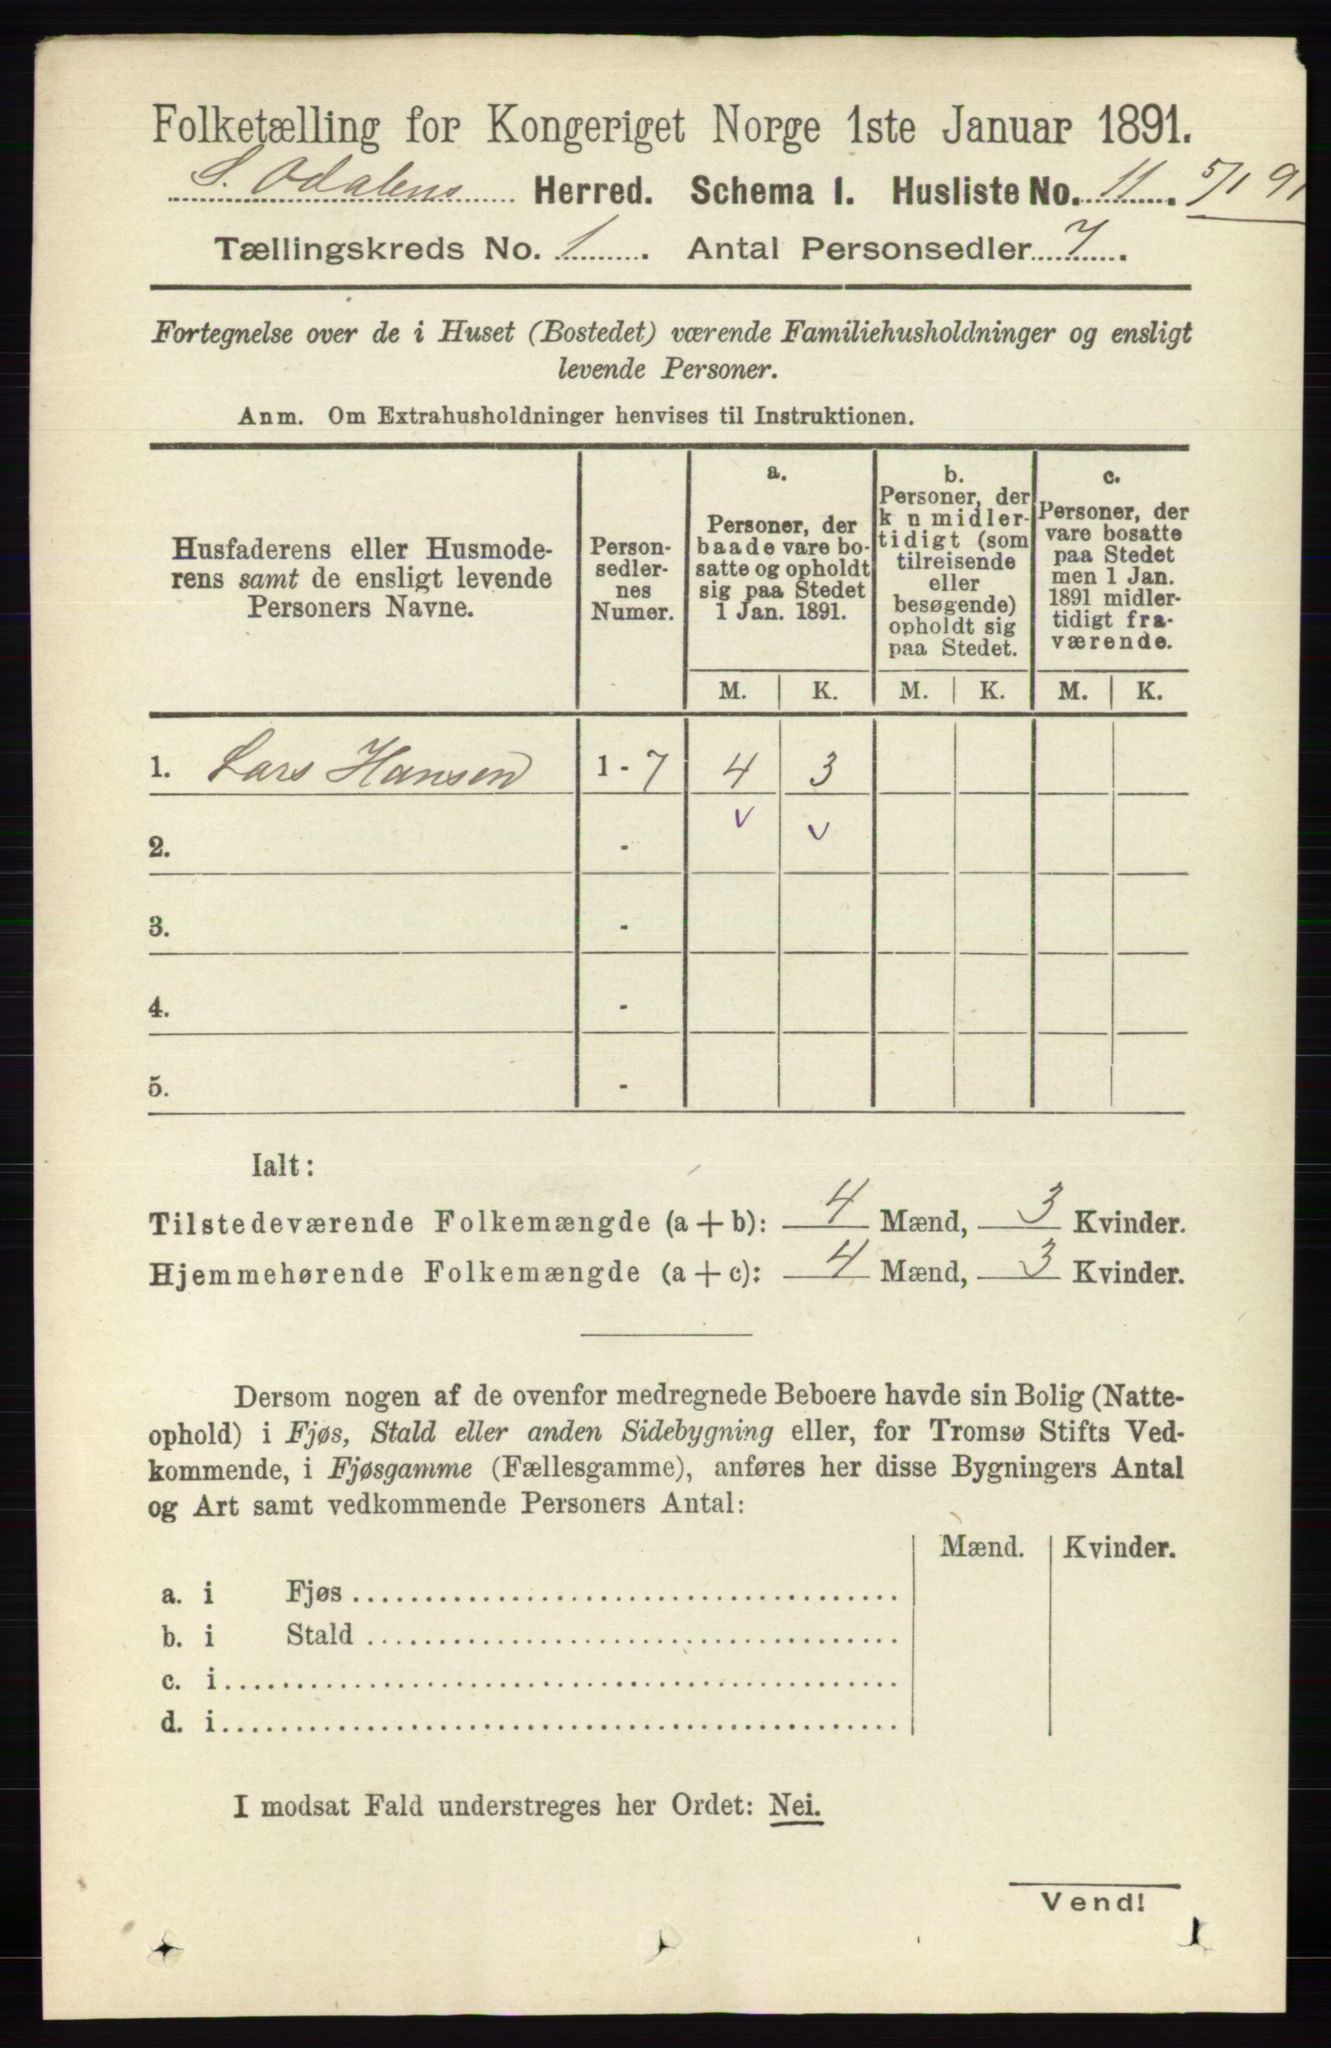 Folketælling for Kongeriget Norge 1ste Januar 1891.
S. Odalens Herred. Schema I. Husliste No. 11. 5/1 91
Tællingskreds No. 1. Antal Personsedler 7.
Fortegnelse over de i Huset (Bostedet) værende Familiehusholdninger og ensligt
levende Personer.
Anm. Om Extrahusholdninger henvises til Instruktionen.
Husfaderens eller Husmode-
rens samt de ensligt levende
Personers Navne.
Person-
sedler-
nes
Numer.
a.
Personer, der
baade vare bo-
satte og opholdt
sig paa Stedet
1 Jan. 1891.
b.
Personer, der
k n midler-
tidigt (som
tilreisende
eller
besøgende)
opholdt sig
paa Stedet.
c.
Personer, der
vare bosatte
paa Stedet
men 1 Jan.
1891 midler-
tidigt fra-
værende.
M. K. M. K. M. K.
1. Lars Hansen 1 - 7 4 3
2. -
3. -
4. -
5. -
Ialt:
Tilstedeværende Folkemængde (a + b): 4 Mænd, 3 Kvinder.
Hjemmehørende Folkemængde (a + c): 4 Mænd, 3 Kvinder.
Dersom nogen af de ovenfor medregnede Beboere havde sin Bolig (Natte-
ophold) i Fjøs, Stald eller anden Sidebygning eller, for Tromsø Stifts Ved-
kommende, i Fjøsgamme (Fællesgamme), anføres her disse Bygningers Antal
og Art samt vedkommende Personers Antal:
Mænd. Kvinder.
a. i Fjøs
b. i Stald
c. i
d. i
I modsat Fald understreges her Ordet: Nei.
Vend!